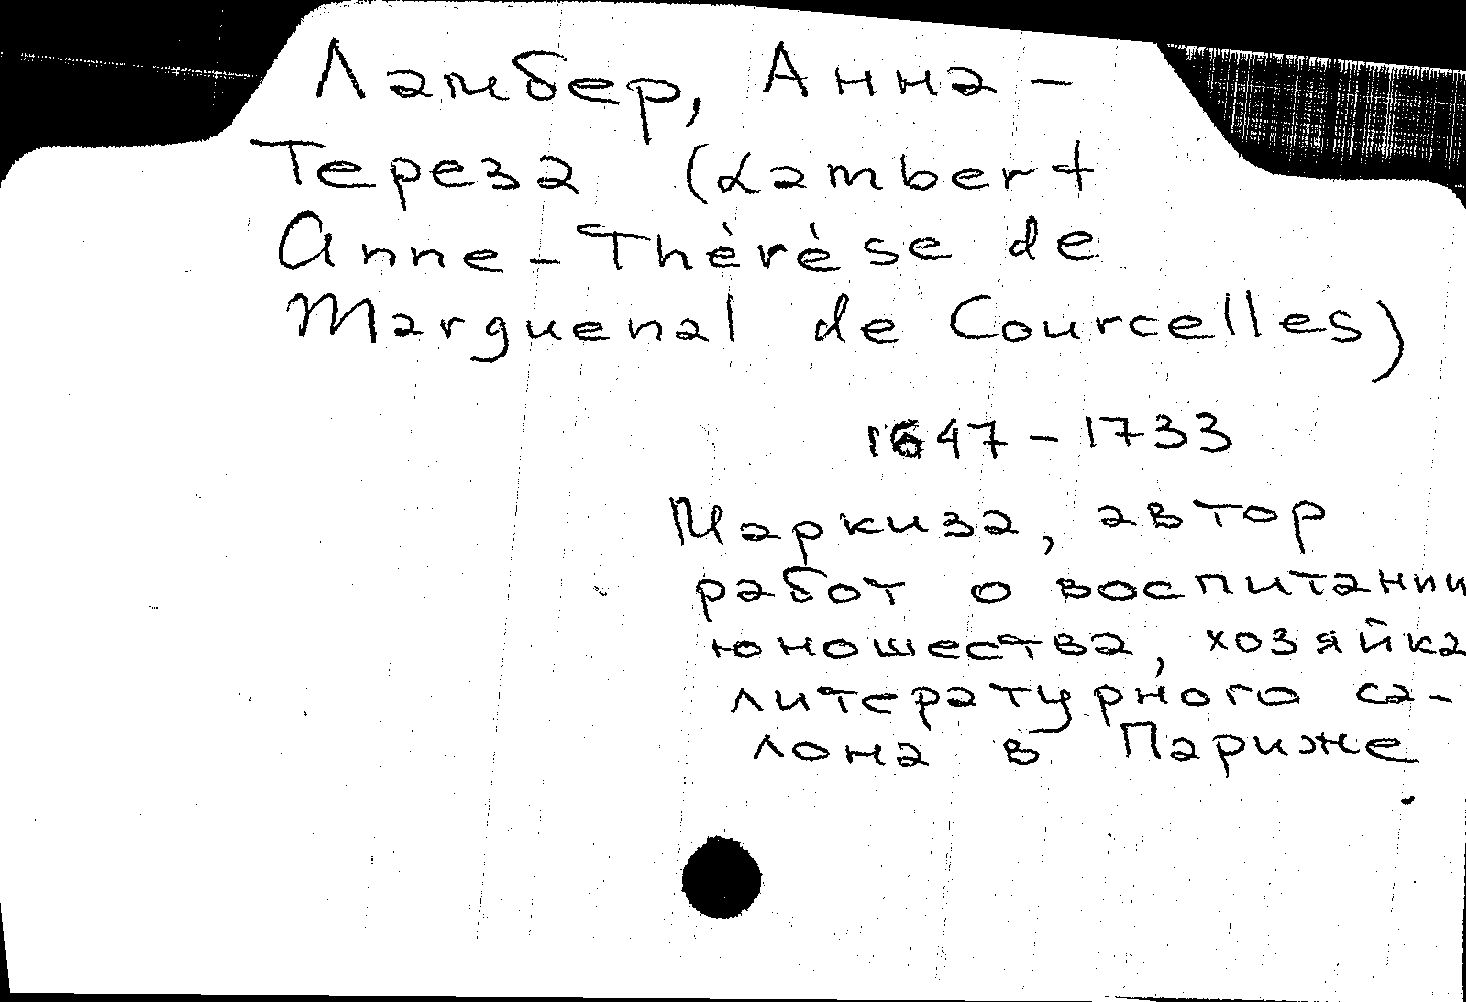 Ламбер, Анна-
Тереза (Lambert
Anne-Thèrèse de
Marguenal de Courcelles)
1647-1733
Маркиза, автор
работ о воспитании
юношества, хозяйка
литературного са-
лона в Париже